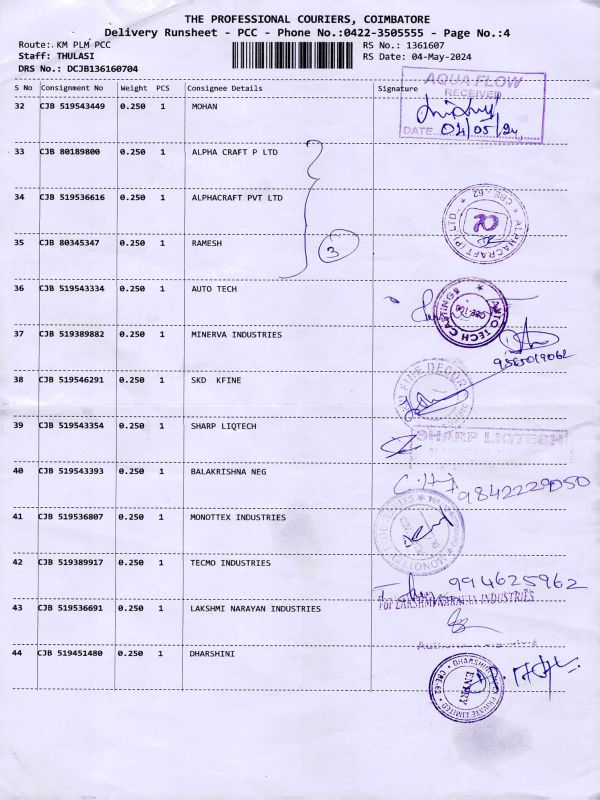 THE PROFESSIONAL COURIERS, COIMBATORE
Delivery Runsheet - PCC - Phone No.:0422-3505555 - Page No.:4
Route: KM PLM PCC
RS No.: 1361607
Staff: THULASI
RS Date: 04-May-2024
DRS No.: DCJB136160704
S No Consignment No Weight PCS Consignee Details Signature
32 CJB 519543449 0.250 1 MOHAN
AQUA FLOW
RECEIVED
DATE 04/05/24
33 CJB 80189800 0.250 1 ALPHA CRAFT P LTD
34 CJB 519536616 0.250 1 ALPHACRAFT PVT LTD
ALPHACRAFT (P) LTD. CBE-62
35 CJB 80345347 0.250 1 RAMESH
3
36 CJB 519543334 0.250 1 AUTO TECH
AUTO TECH CASTINGS
37 CJB 519389882 0.250 1 MINERVA INDUSTRIES
38 CJB 519546291 0.250 1 SKD KFINE
FINE DECOR
39 CJB 519543354 0.250 1 SHARP LIQTECH
SHARP LIQTECH
40 CJB 519543393 0.250 1 BALAKRISHNA NEG
9842229050
41 CJB 519536807 0.250 1 MONOTTEX INDUSTRIES
42 CJB 519389917 0.250 1 TECMO INDUSTRIES
994625962
43 CJB 519536691 0.250 1 LAKSHMI NARAYAN INDUSTRIES
For LAKSHMI NARAYAN INDUSTRIES
44 CJB 519451480 0.250 1 DHARSHINI
DHARSHINI PRIVATE LIMITED CBE-62
ENTRY